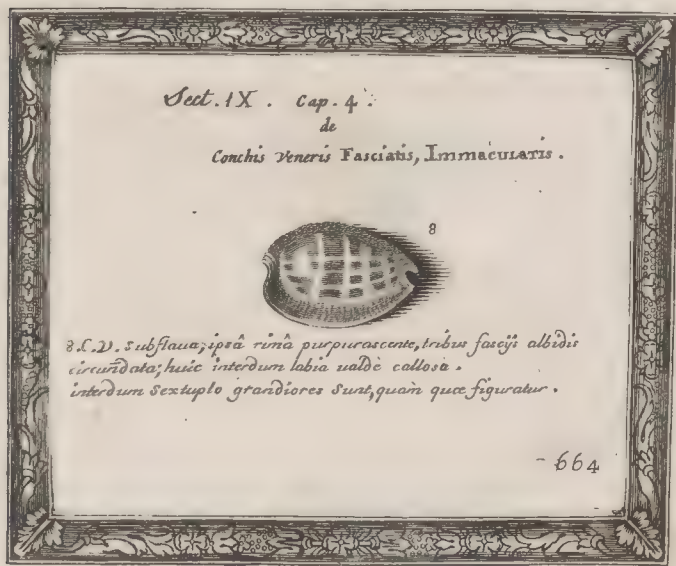 Sect. IX. Cap. 4.
de
Conchis Veneris Fasciatis, Immaculatis.
8
8 C.V. subflava; ipsâ rimâ purpurascente, tribus fascijs albidis
circundata; huic interdum labia ualdè callosa.
interdum Sextuplo grandiores Sunt, quàm quæ figuratur.
- 664